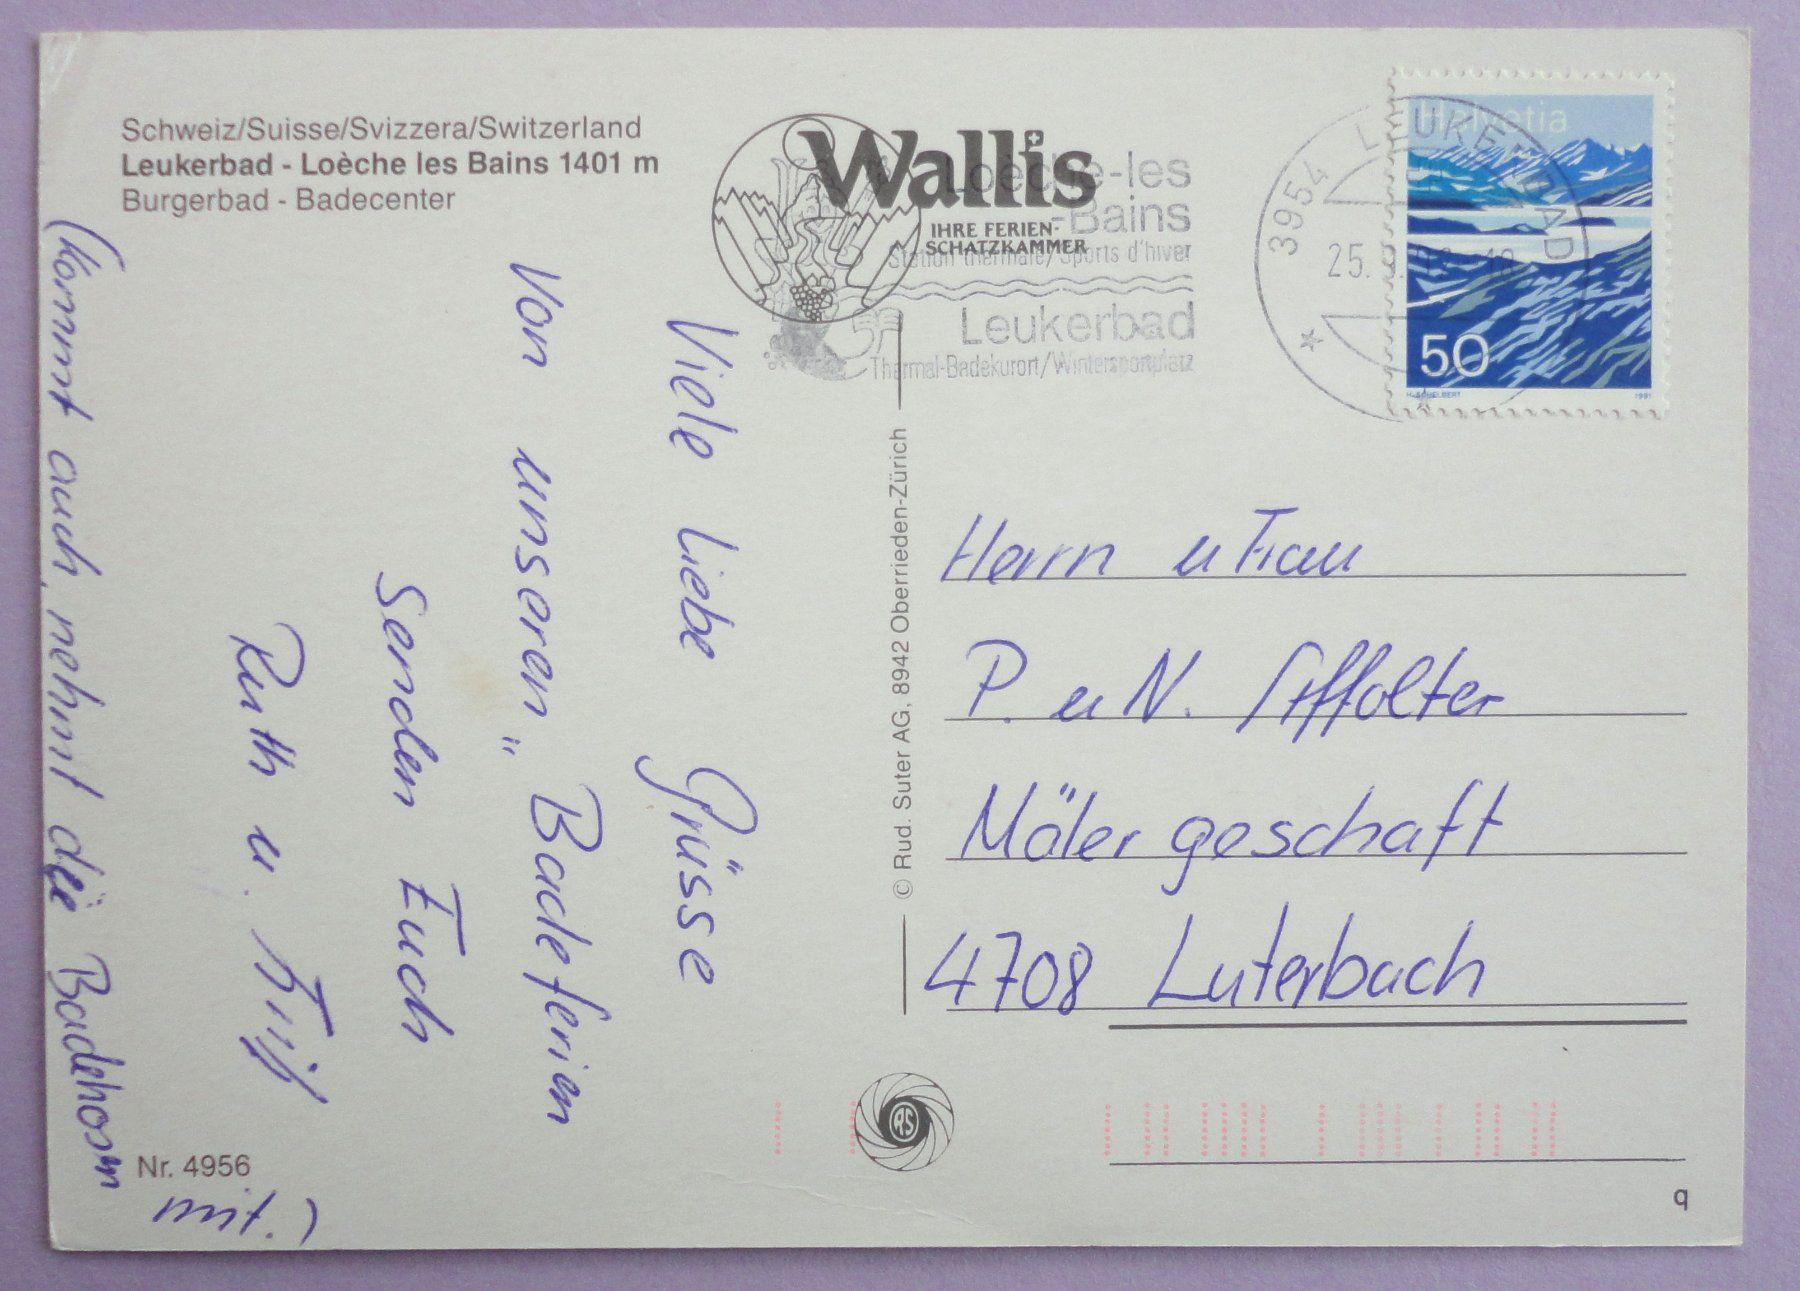 Schweiz/Suisse/Svizzera/Switzerland
Leukerbad - Loèche les Bains 1401 m
Burgerbad - Badecenter
Wallis
IHRE FERIEN-
SCHATZKAMMER
Loèche-les
-Bains
Station thermale/Sports d'hiver
Leukerbad
Thermal-Badekurort/Wintersportplatz
3954 LEUKERBAD
25.
18
Helvetia
50
H. SCHELBERT
1991
Viele Liebe Grüsse
Von unseren "Badeferien
Senden Euch
Ruth u.
(kommt auch, nehmt die Badehosen
mit.)
© Rud. Suter AG, 8942 Oberrieden-Zürich
Herrn u Frau
P. u N. Affolter
Mälergeschaft
4708 Luterbach
RS
Nr. 4956
q